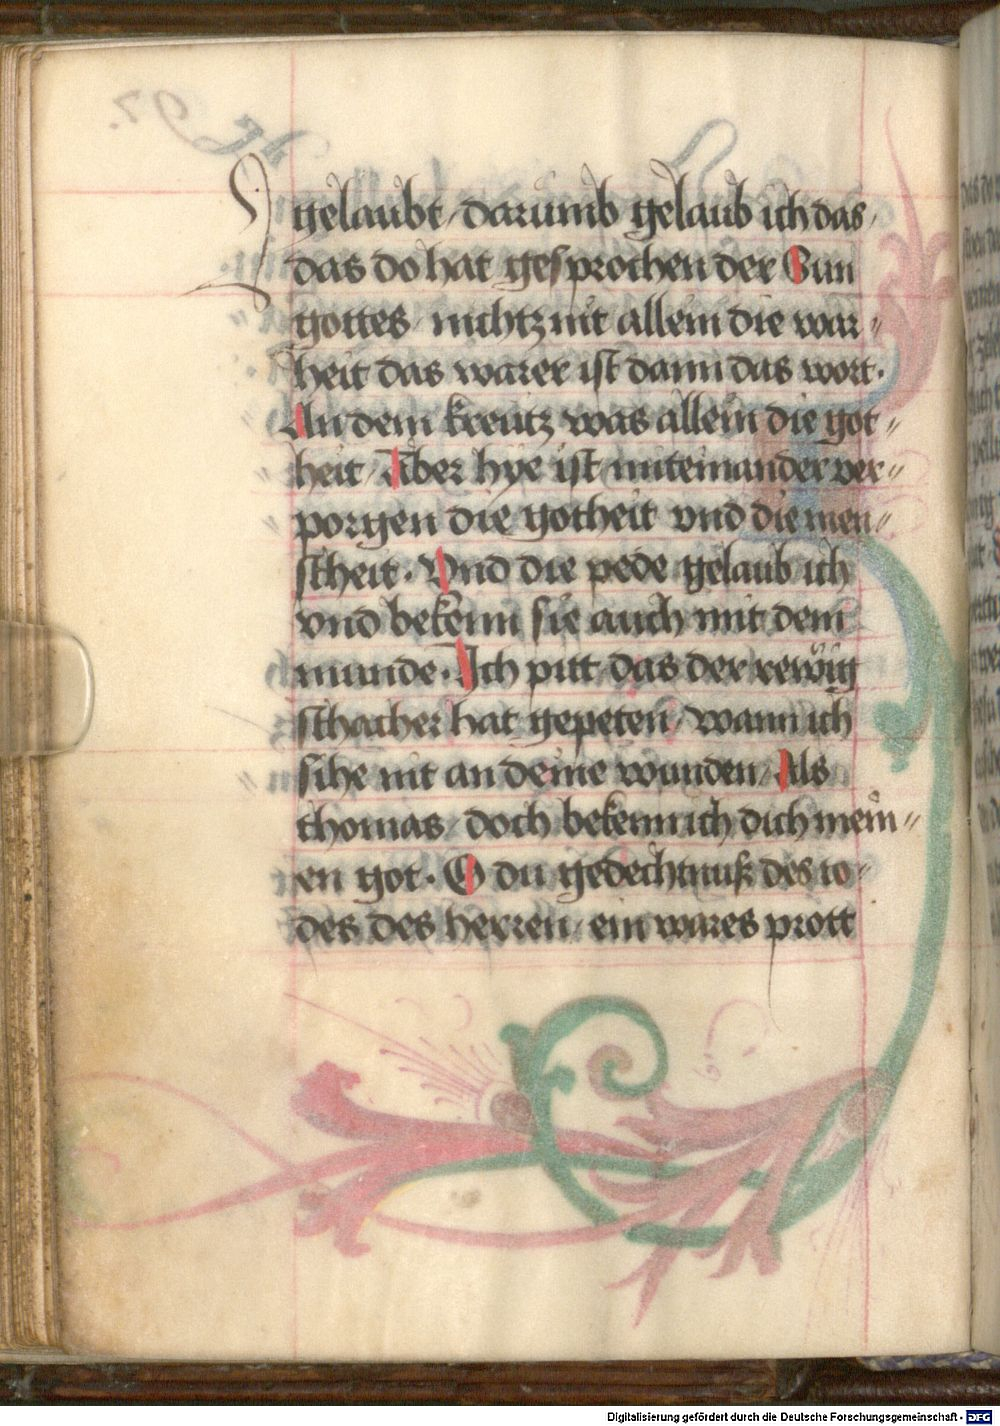 gelaubt / darumb gelaub ich das /
das do hat gesprochen der Sun
gottes / nichtz nit allein die war„
heit das warer ist dann das wort .
An dem kreutz was allein die got„
heit / Aber hye ist / miteinander ver„
porgen die gotheit vnd die men„
scheit . Vnd die pede gelaub ich
vnd bekenn sie auch mit dem
munde . Ich pitt / das der rewig
schacher hat gepeten / wann ich
sihe nit an deine wunden / Als
thomas / doch bekenn ich dich mein„
en got . O du gedechtnuß des to„
des des herren / ein wares prott
Digitalisierung gefördert durch die Deutsche Forschungsgemeinschaft - DFG